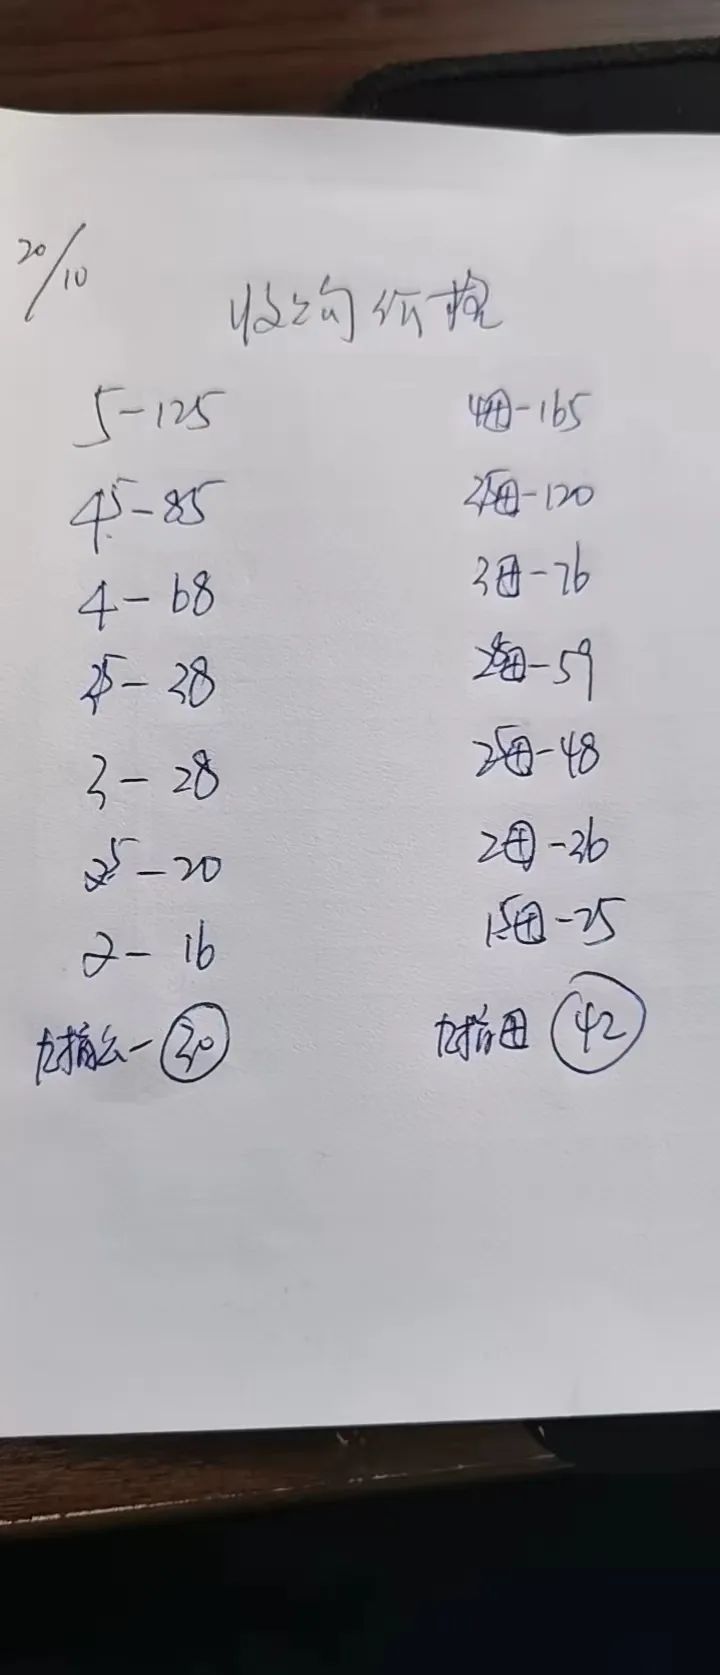 20/10
收购价格
5-125
4.5-85
4-68
3.5-38
3-28
2.5-20
2-16
尢指公-30
4母-165
3.5母-120
3母-76
2.8母-59
2.5母-48
2母-36
1.5母-25
尢指母 42